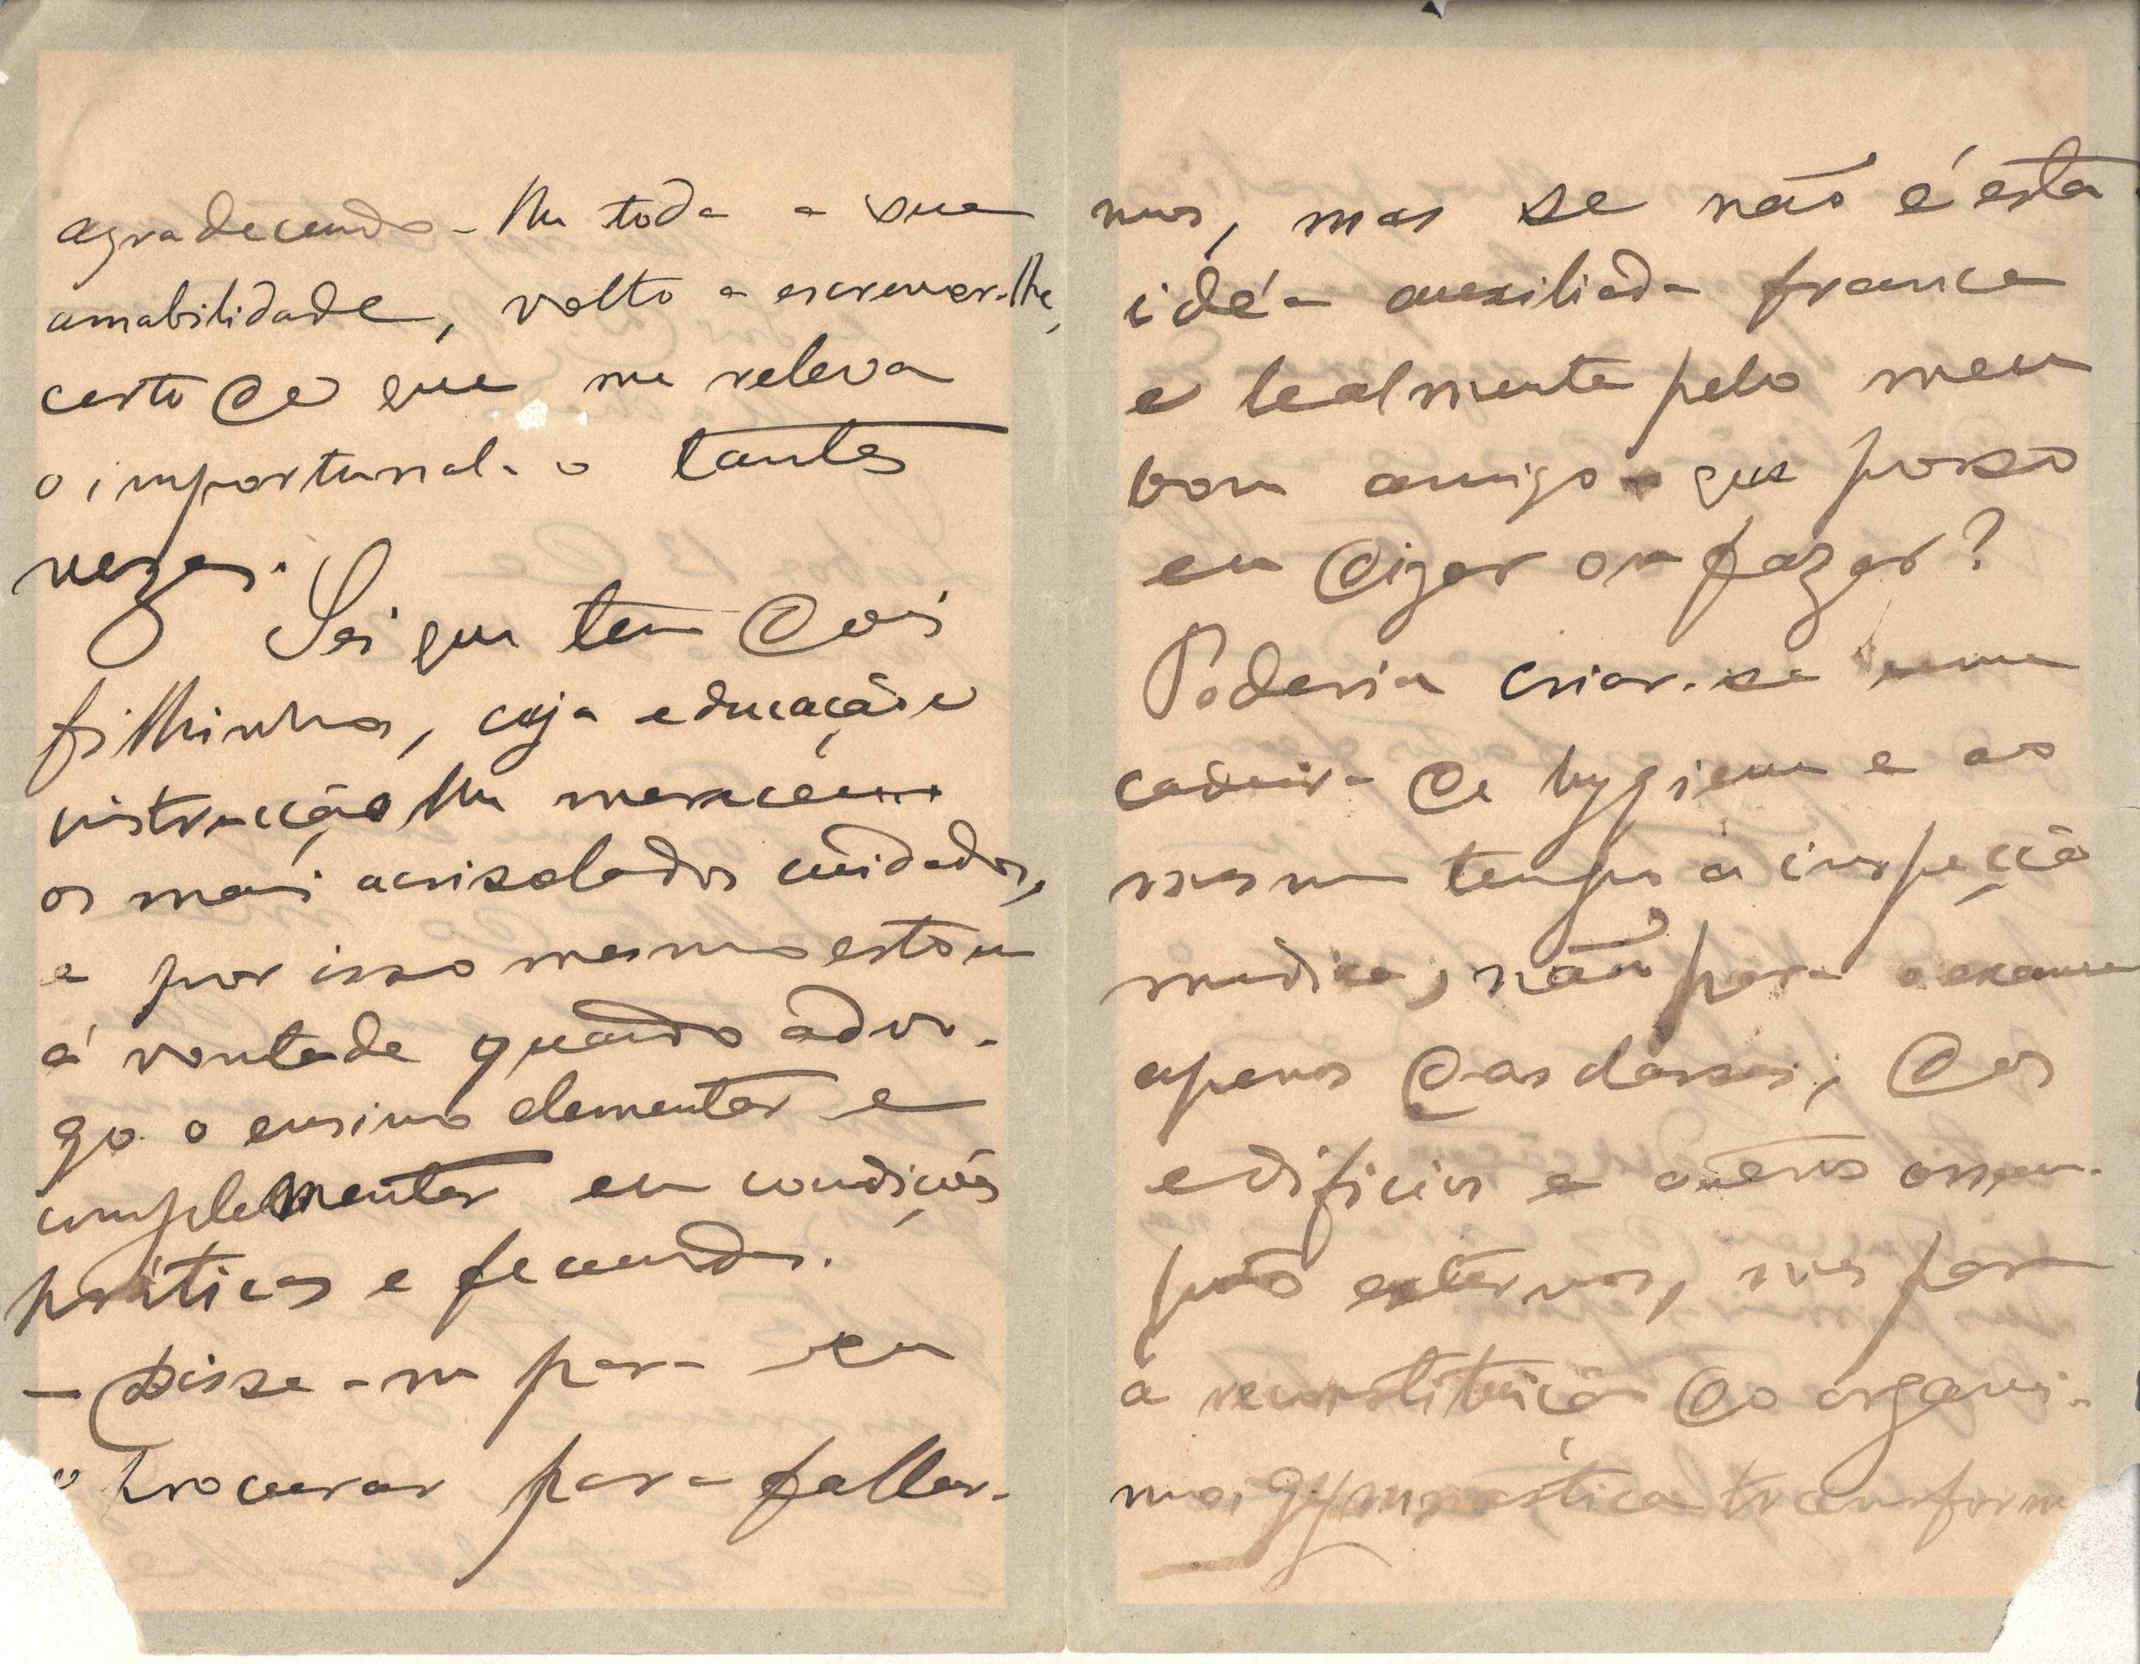 agradecendo-lhe toda a sua
amabilidade, volto a escrever-lhe,
certo de que me releva
o importunal-o tantas
vezes.
Sei que tem dois
filhinhos, cuja educação e
instrucção lhe merecem
os mais acrisolados cuidados,
e por isso mesmo estou
á vontade quando advo-
go o ensino elementar e
complementar em condições
práticas e fecundas.
— Disse-me para eu
o procurar para fallar-
mos, mas se não é esta
idéa auxiliada franca
e lealmente pelo meu
bom amigo que posso
eu dizer ou fazer?
Poderia criar-se uma
cadeira de hygiene e ao
mesmo tempo a inspecção
medica, não para o exame
apenas das classes, dos
edificios e outros assum-
ptos externos, mas para
a reconstituição do organi-
mo; gymnastica transform